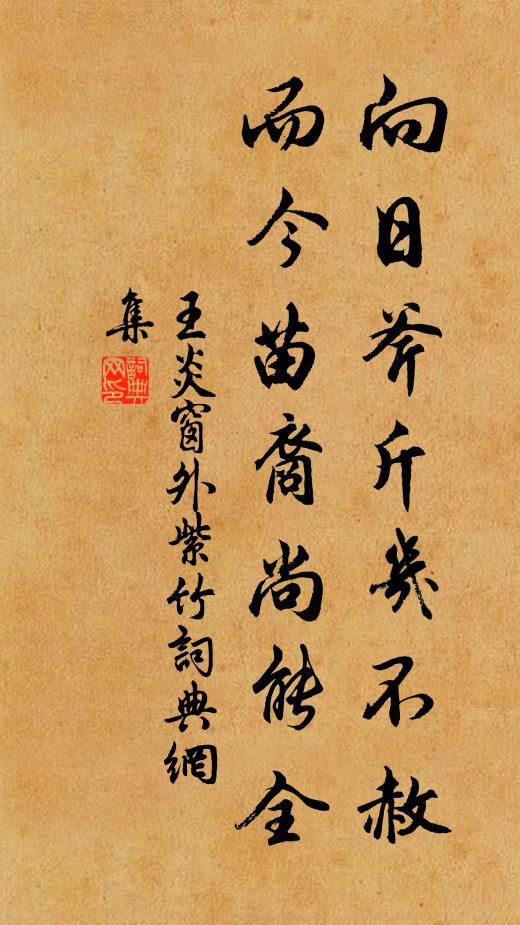 向日斧斤幾不赦
而今苗裔尚能全
王炎窗外紫竹詞典網
集
詞典
网印